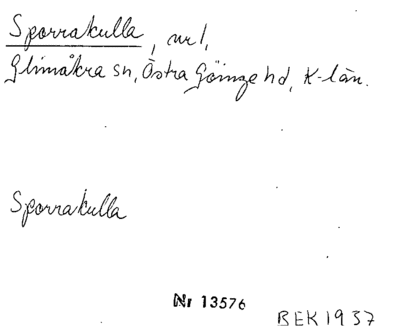 Sporrakulla, nr 1,
Glimåkra sn, Östra Göinge hd, K-län.
Sporrakulla
Nr 13576
BEK 1937